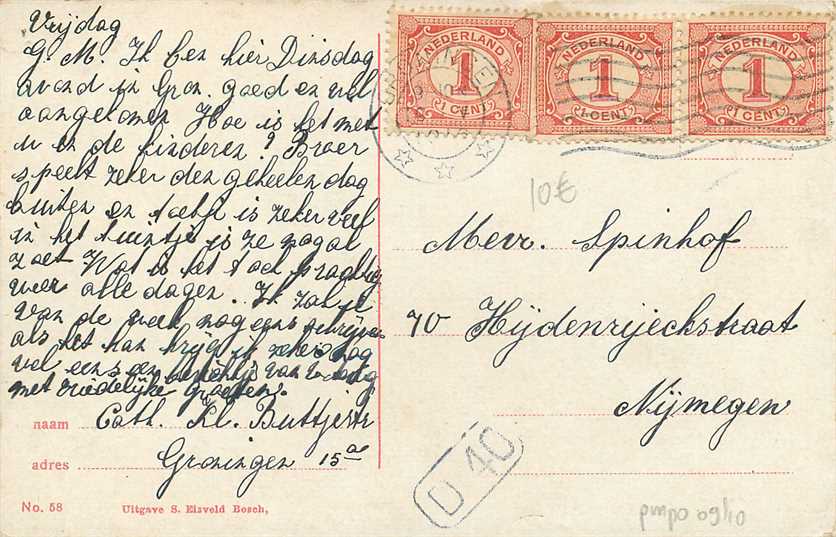 Vrijdag
G. M. Ik ben hier Dinsdag
avond in Gron. goed en wel
aangekomen Hoe is het met
u en de kinderen? Broer
speelt zeker den geheelen dag
buiten en is zeker veel
in het tuintje is ze nogal
zoet Wat is het toch prachtig
weer alle dagen. Ik zal je
van de week nog eens schrijven
als het kan krijg ik zeker ook
wel eens een berichtje van
met vriendelijke groeten.
naam Cath. Kl. Buttjestr
adres Groningen 15a
No. 58 Uitgave S. Eisveld Bosch,
NEDERLAND
1
1 CENT
NEDERLAND
1
1 CENT
NEDERLAND
1
1 CENT
10€
Mevr. Spinhof
70 Heijdenrijckstraat
Nijmegen
D 40